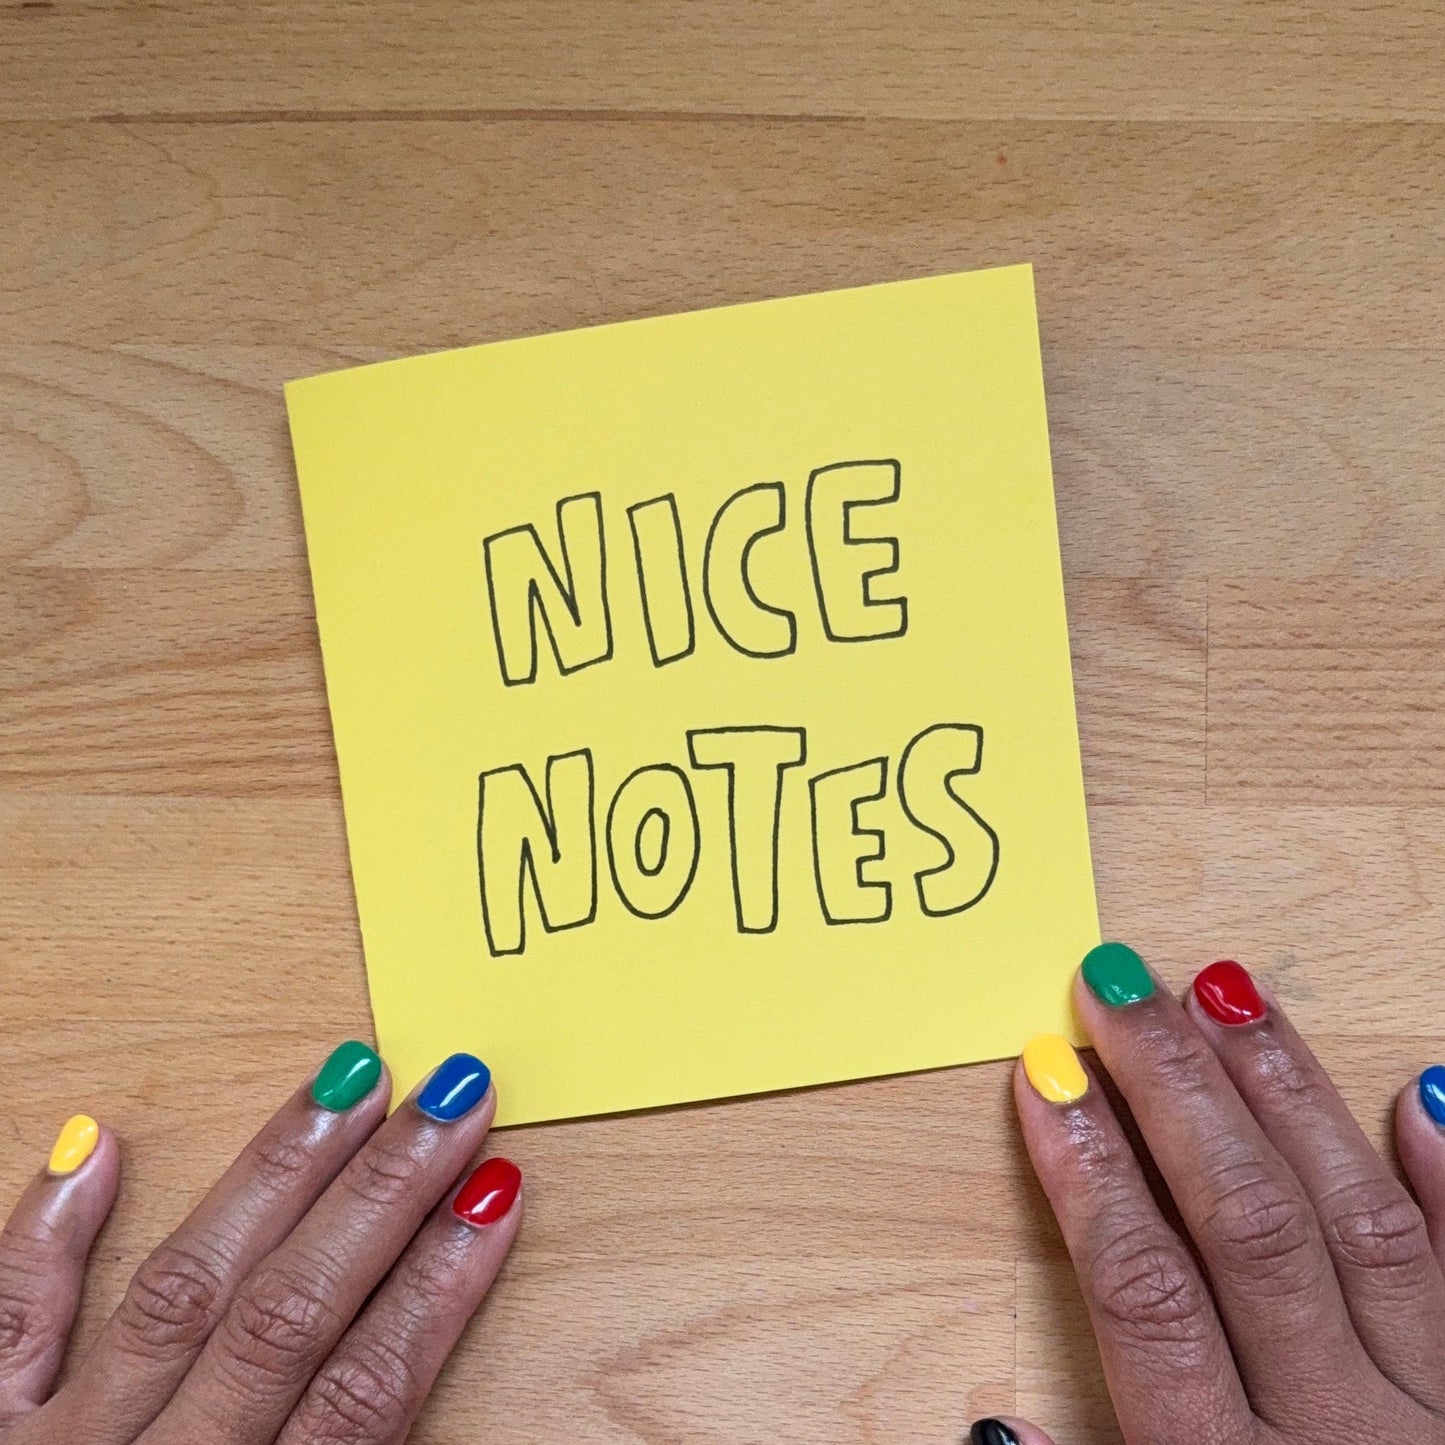 NICE
NOTES